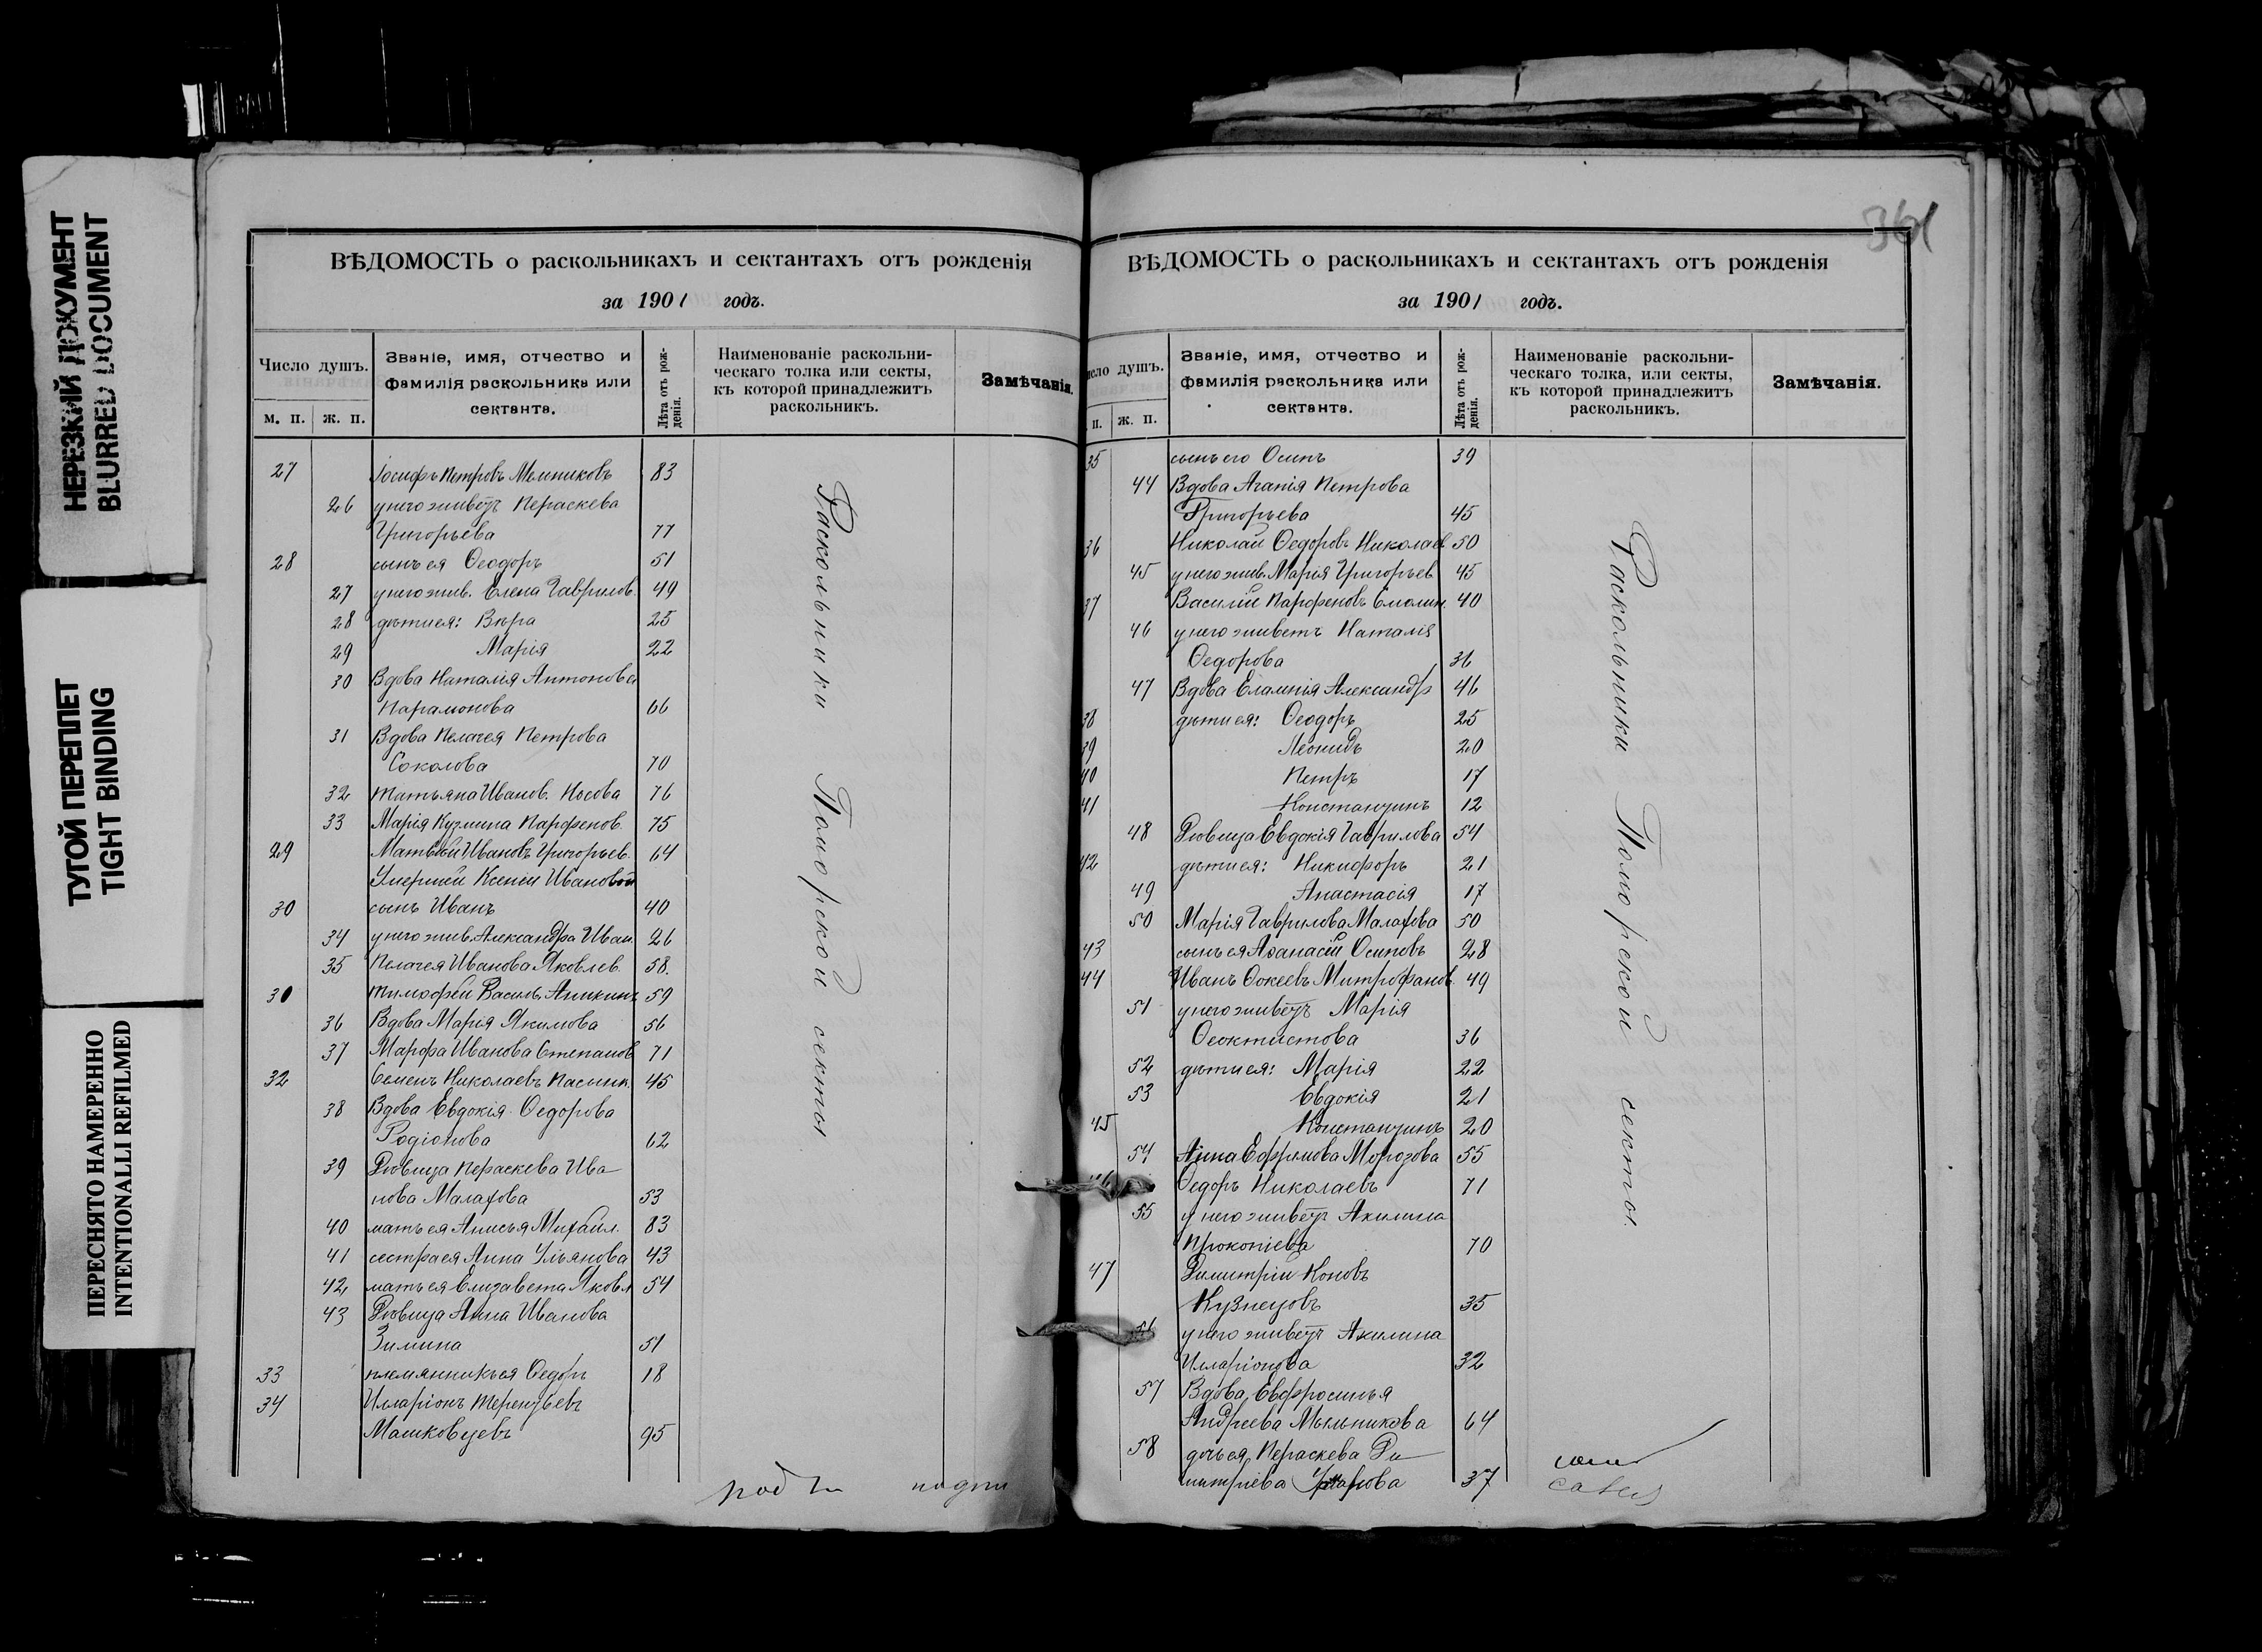 НЕРЕЗКИЙ ДОКУМЕНТ
BLURRED DOCUMENT
ТУГОЙ ПЕРЕПЛЕТ
TIGHT BINDING
ПЕРЕСНЯТО НАМЕРЕННО
INTENTIONALLI REFILMED
ВѢДОМОСТЬ о раскольникахъ и сектантахъ отъ рожденія
за 1901 годъ.
Число душъ.
м. п. ж. п.
Званіе, имя, отчество и
фамилія раскольника или
сектанта.
Лѣта отъ рож-
денія.
Наименованіе раскольни-
ческаго толка или секты,
къ которой принадлежитъ
раскольникъ.
Замѣчанія.
27 Іосифъ Петровъ Мельниковъ 83
26 у него живетъ Пераскева
Григорьева 77
28 сынъ ея Ѳеодоръ 51
27 у него жив. Елена Гаврилов. 49
28 дѣти ея: Вѣра 25
29 Марія 22
30 Вдова Наталія Антонова
Парамонова 66
31 Вдова Пелагея Петрова
Соколова 70
32 Татьяна Иванов. Носова 76
33 Марія Кузмина Парфенов. 75
29 Матвѣй Ивановъ Григорьев. 64
Умершей Ксеніи Ивановой
30 сынъ Иванъ 40
34 у него жив. Александра Иван. 26
35 Пелагея Иванова Яковлев. 58.
30 Тимофей Василь. Аникинъ 59
36 Вдова Марія Якимова 56
37 Марфа Иванова Степанов 71
32 Семенъ Николаевъ Пасынк. 45
38 Вдова Евдокія Ѳедорова
Родіонова 62
39 Дѣвица Пераскева Ива
нова Малахова 53
40 мать ея Анисья Михаил. 83
41 сестра ея Анна Ульянова 43
42 мать ея Елизавета Яковл 54
43 Дѣвица Анна Иванова
Зимина 51
33 племянникъ ея Ѳедоръ 18
34 Илларіонъ Терентьевъ
Машковцевъ 95
Раскольники Поморской секты
ВѢДОМОСТЬ о раскольникахъ и сектантахъ отъ рожденія
за 1901 годъ.
361
душъ.
п. ж. п.
Званіе, имя, отчество и
фамилія раскольника или
сектанта.
Лѣта отъ рож-
денія.
Наименованіе раскольни-
ческаго толка, или секты,
къ которой принадлежитъ
раскольникъ.
Замѣчанія.
35 сынъ его Осипъ 39
44 Вдова Агапія Петрова
Григорьева 45
36 Николай Ѳедоровъ Николаев 50
45 у него жив. Марія Григорьев 45
37 Василій Парфеновъ Смолин. 40
46 у него живетъ Наталія
Ѳедорова 36
47 Вдова Елампія Александр 46
38 дѣти ея: Ѳеодоръ 25
39 Леонидъ 20
40 Петръ 17
41 Константинъ 12
48 Дѣвица Евдокія Гаврилова 54
42 дѣти ея: Никифоръ 21
49 Анастасія 17
50 Марія Гаврилова Малахова 50
43 сынъ ея Аѳанасій Осиповъ 28
44 Иванъ Ѳокеевъ Митрофанов. 49
51 у него живетъ Марія
Ѳеоктистова 36
52 дѣти ея: Марія 22
53 Евдокія 21
45 Константинъ 20
54 Анна Ефремова Морозова 55
46 Ѳедоръ Николаевъ 71
55 у него живетъ Акилина
Прокопіева 70
47 Димитрій Коновъ
Кузнецовъ 35
56 у него живетъ Акилина
Илларіонова 32
57 Вдова Евфросинья
Андреева Мыльникова 64
58 дочь ея Пераскева Ди
митріева 37
Раскольники Поморской секты.